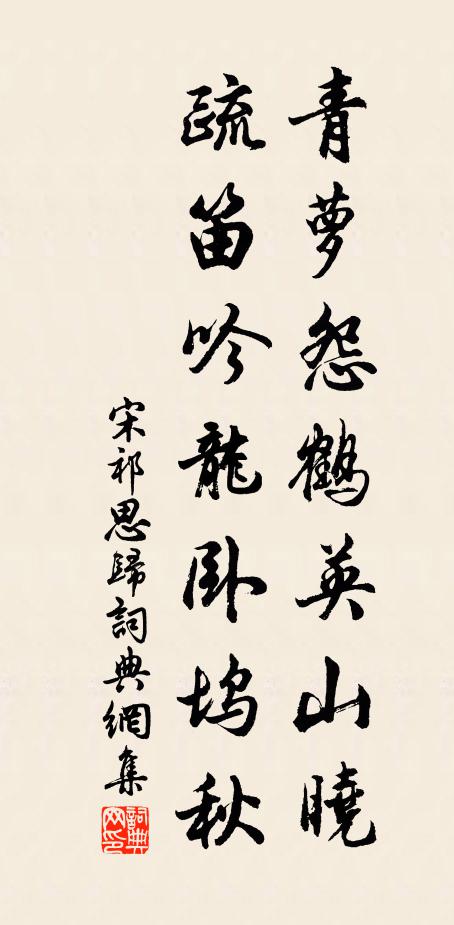 青萝怨鶴英山曉
疏笛吟龍卧坞秋
宋祁思歸詞典網集
詞典网印